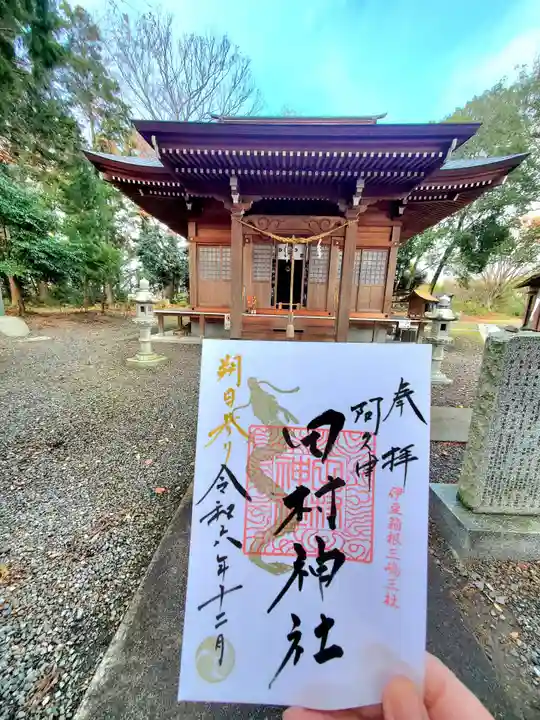 奉拝
伊豆箱根三嶋三社
阿久津
田村神社
令和六年十二月
朔日参り